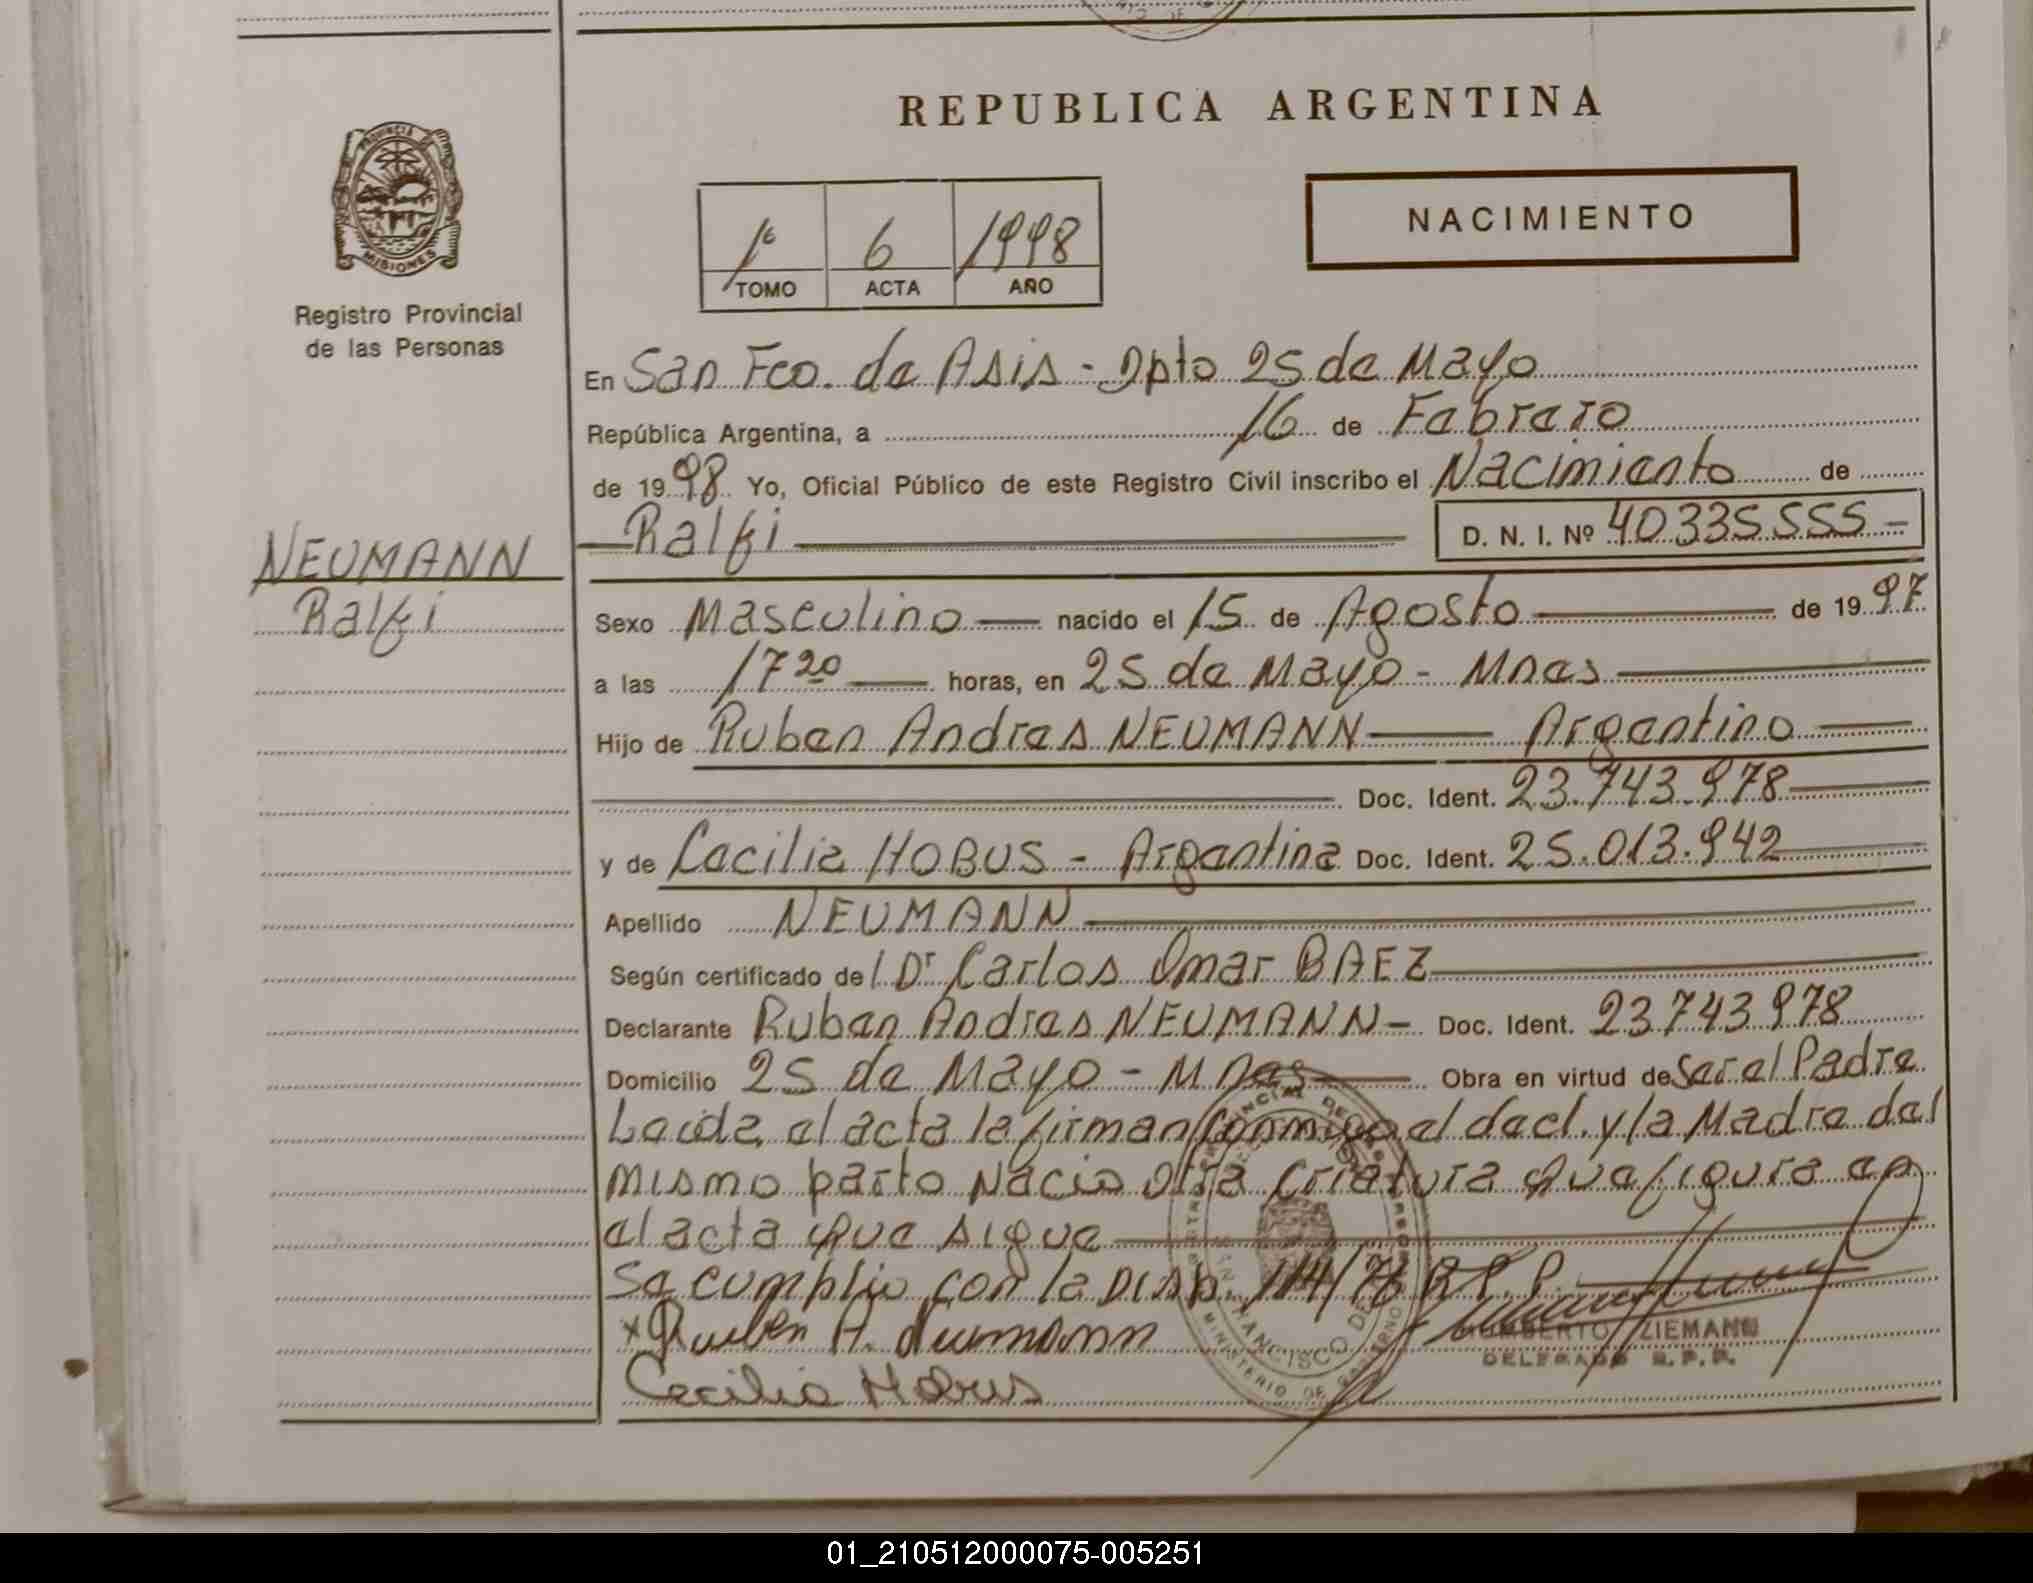 REPUBLICA ARGENTINA
PROVINCIA DE
MISIONES
Registro Provincial
de las Personas
1º 6 1998
TOMO ACTA AÑO
NACIMIENTO
En San Fco. de Asis - Dpto 25 de Mayo
República Argentina, a 16 de Febrero
de 1998 Yo, Oficial Público de este Registro Civil inscribo el Nacimiento de
Ralfi D. N. I. Nº 40335555-
NEUMANN
Ralfi
Sexo Masculino nacido el 15 de Agosto de 1997
a las 17 20 horas, en 25 de Mayo - Mnes
Hijo de Ruben Andres NEUMANN Argentino
Doc. Ident. 23.743.978
y de Cecilia HOBUS - Argentina Doc. Ident. 25.013.942
Apellido NEUMANN
Según certificado del Dr Carlos Omar BAEZ
Declarante Ruben Andres NEUMANN - Doc. Ident. 23743978
Domicilio 25 de Mayo - Mnes Obra en virtud de Ser el Padre
Leida el acta la firman conmigo el decl. y la Madre del
mismo parto Nacio otra criatura que figura en
el acta que sigue
Se cumplio con la Disp. 114/76 R.P.P.
x Ruben A. Neumann
Cecilia Hobus
HUMBERTO ZIEMANN
DELEGADO R.P.P.
01_210512000075-005251